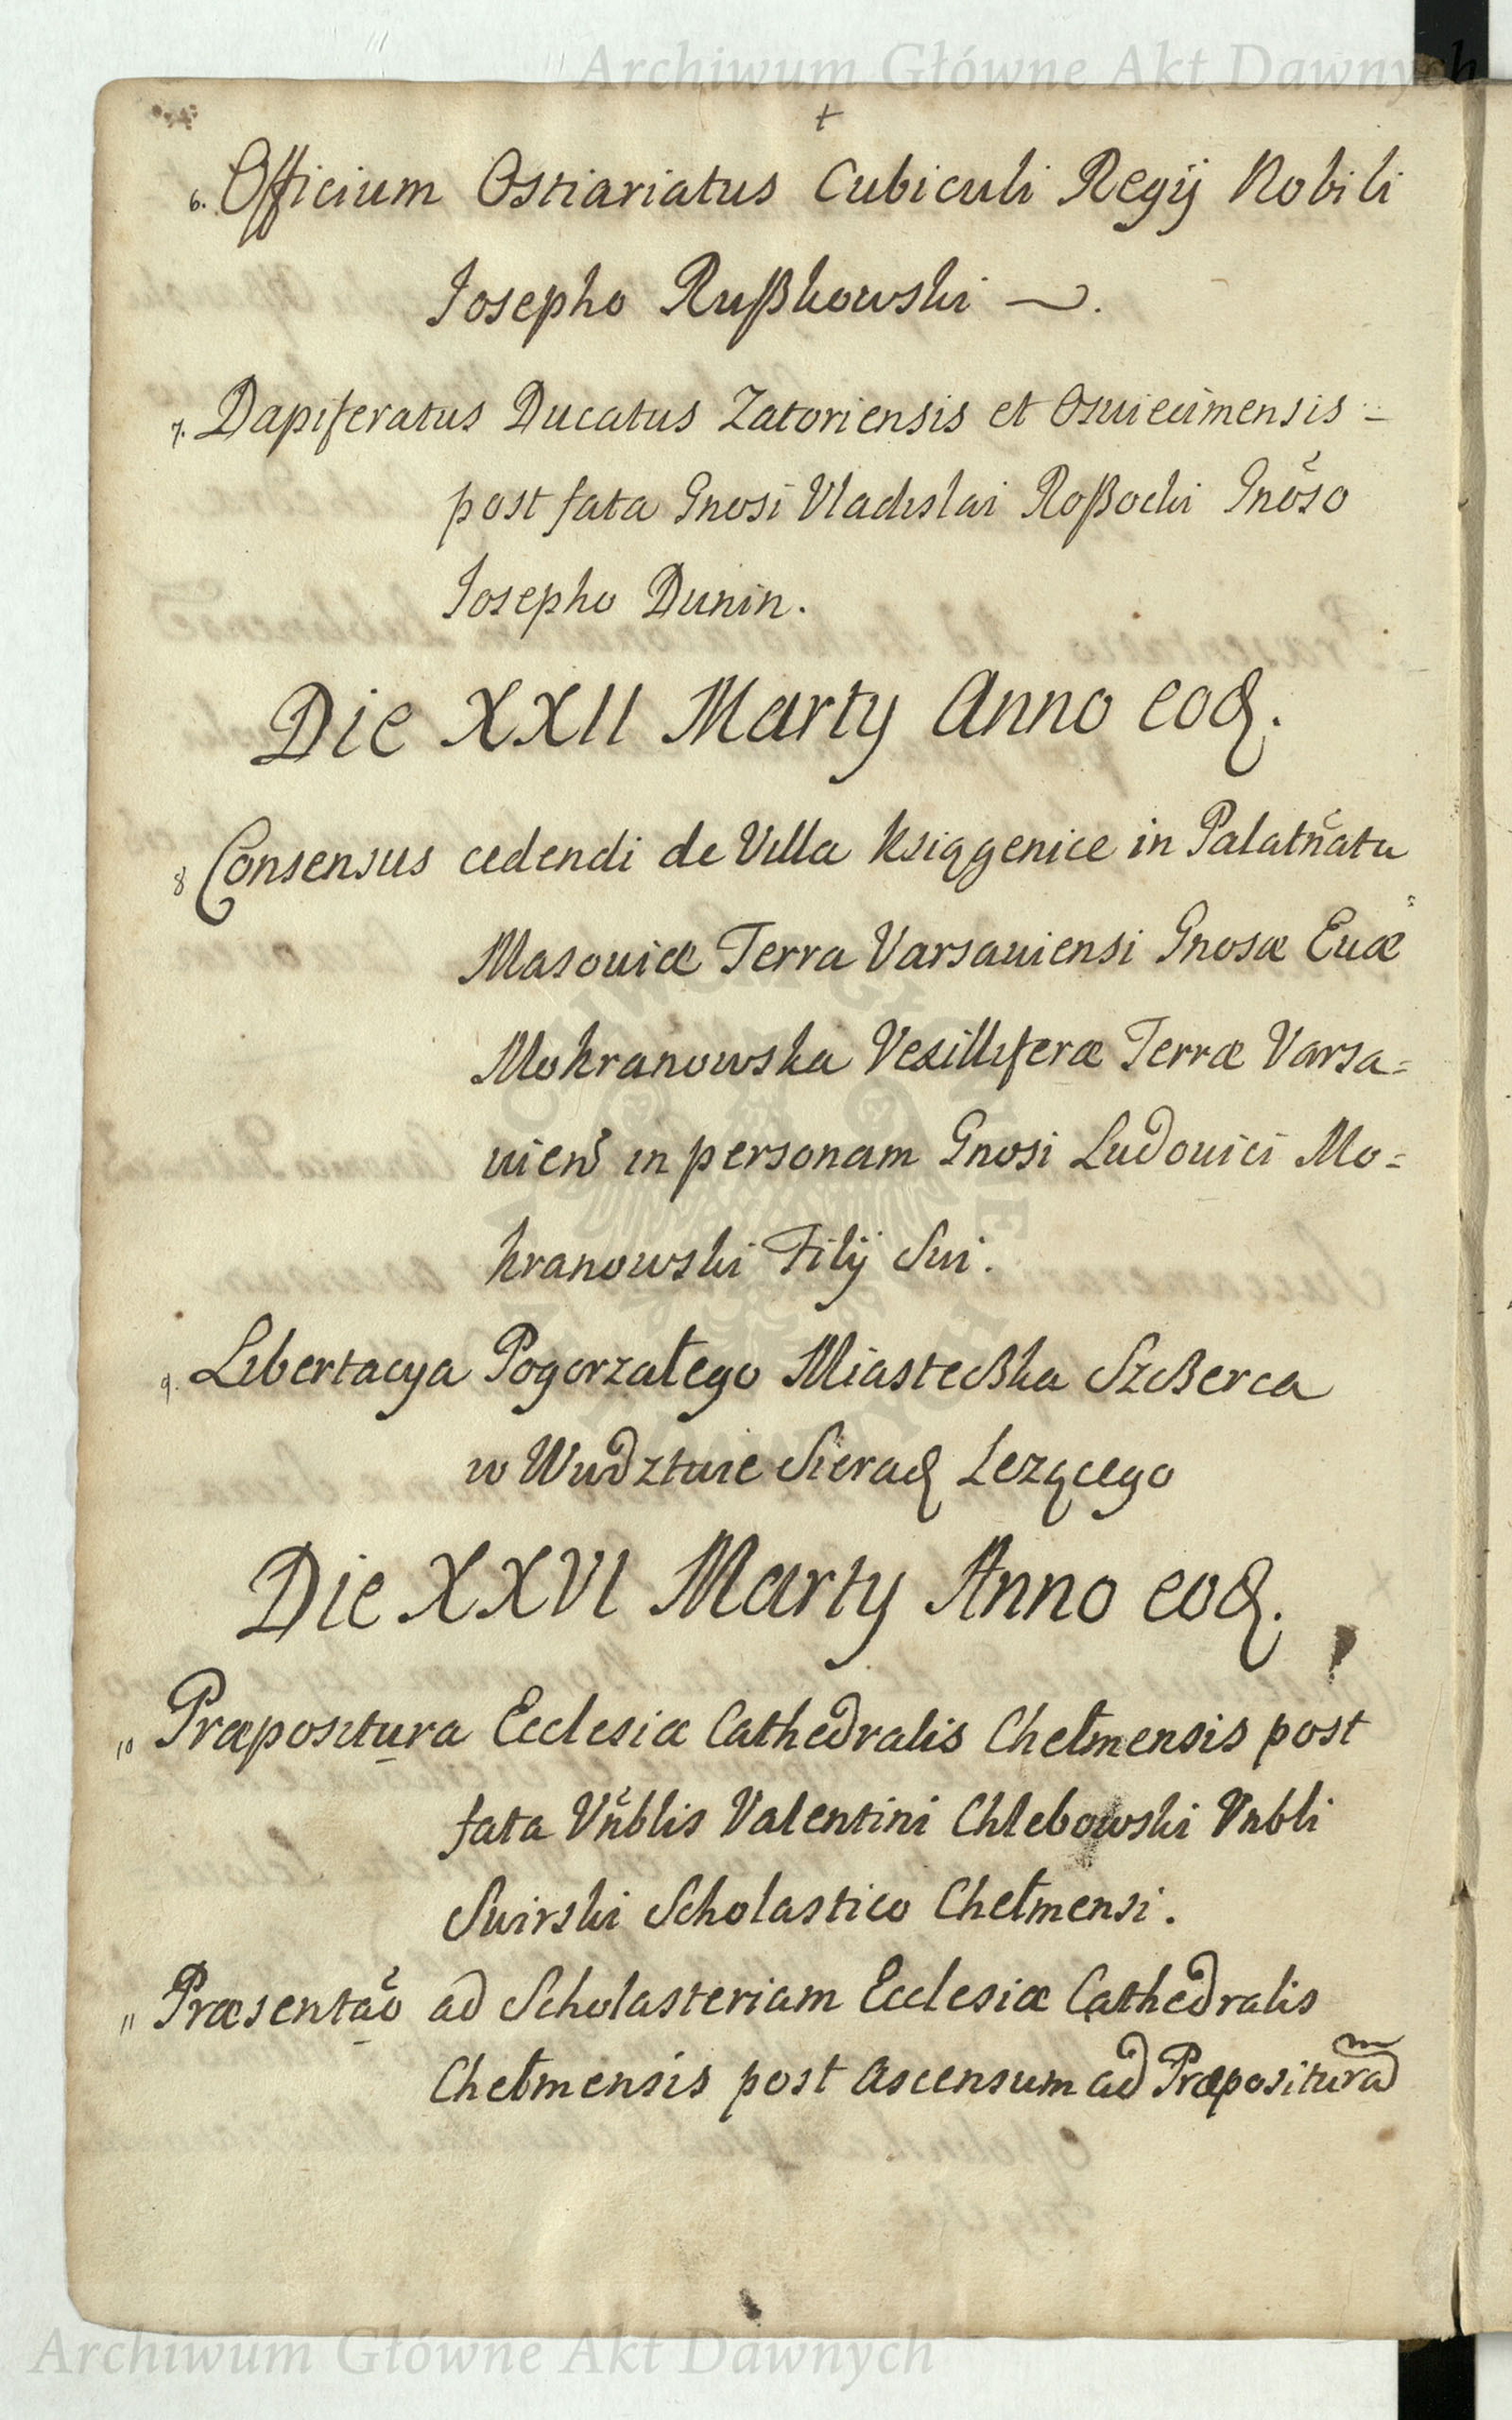 Archiwum Główne Akt Dawnych
+
6. Officium Ostiariatus Cubiculi Regij Nobili
Josepho Rußkowski —.
7. Dapiferatus Ducatus Zatoriensis et Oswiecimensis –
post fata Gnosi Vladislai Roßocki Gnõso
Josepho Dunin.
Die XXII Martij Anno eod.
8 Consensus cedendi de Villa Ksiągenice in Palatñatu
Masouiæ Terra Varsauiensi Gnosæ Euæ
Mokranowska Vexilliferæ Terræ Varsa=
uien̄ in personam Gnosi Ludouici Mo=
kranowski Filij Sui.
9. Libertacya Pogorzałego Miasteczka Szczerca
w Wudztwie Sierad Lezącego
Die XXVI Martij Anno eod.
10 Præpositura Ecclesiæ Cathedralis Chełmensis post
fata Vñblis Valentini Chlebowski Vnbli
Swirski Scholastico Chełmensi.
11 Præsentaõ ad Scholasteriam Ecclesiæ Cathedralis
Chełmensis post Ascensum ad Præposituram
Archiwum Główne Akt Dawnych